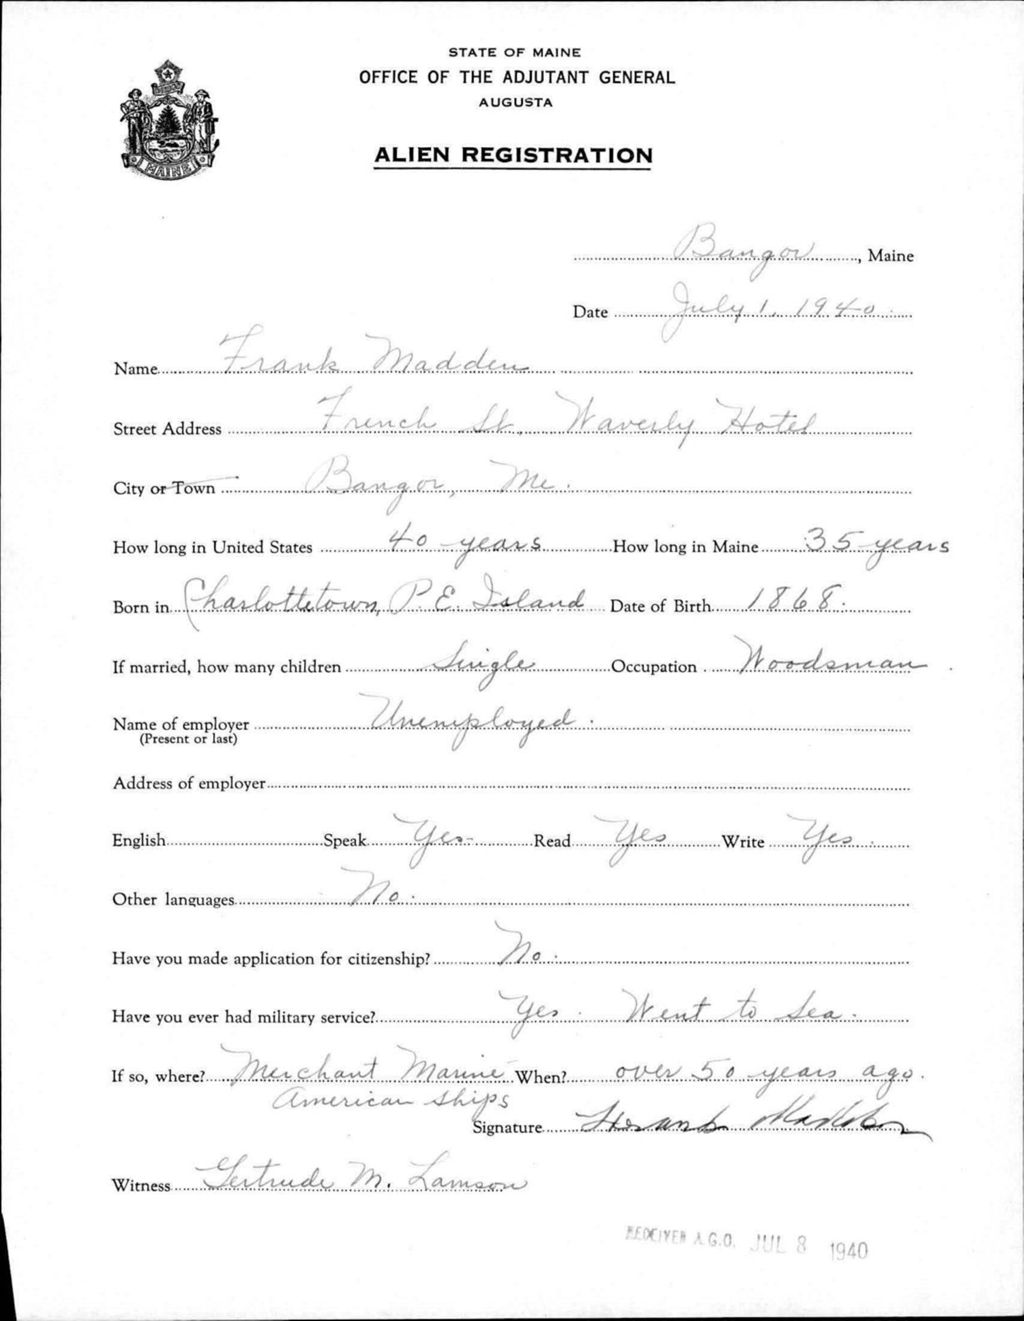 STATE OF MAINE
OFFICE OF THE ADJUTANT GENERAL
AUGUSTA
ALIEN REGISTRATION
MAINE
Bangor, Maine
Date July 1, 1940
Name Frank Madden
Street Address French St. Waverly Hotel
City or Town Bangor, Me.
How long in United States 40 years How long in Maine 35 years
Born in Charlottetown, P.E. Island Date of Birth 1868.
If married, how many children Single Occupation Woodsman
Name of employer Unemployed.
(Present or last)
Address of employer
English Speak Yes Read Yes Write Yes
Other languages No.
Have you made application for citizenship? No.
Have you ever had military service? Yes. Went to Sea.
If so, where? Merchant Marine When? over 50 years ago.
American ships
Signature Frank Madden
Witness Gertrude M. Lamson
RECEIVED A.G.O. JUL 8 1940